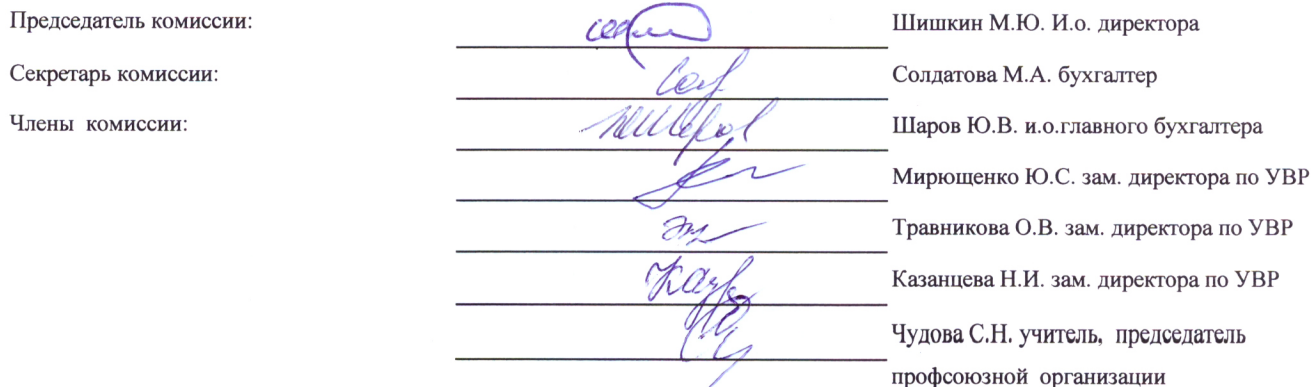 Председатель комиссии: Шишкин М.Ю. И.о. директора
Секретарь комиссии: Солдатова М.А. бухгалтер
Члены комиссии: Шаров Ю.В. и.о.главного бухгалтера
Мирющенко Ю.С. зам. директора по УВР
Травникова О.В. зам. директора по УВР
Казанцева Н.И. зам. директора по УВР
Чудова С.Н. учитель, председатель
профсоюзной организации